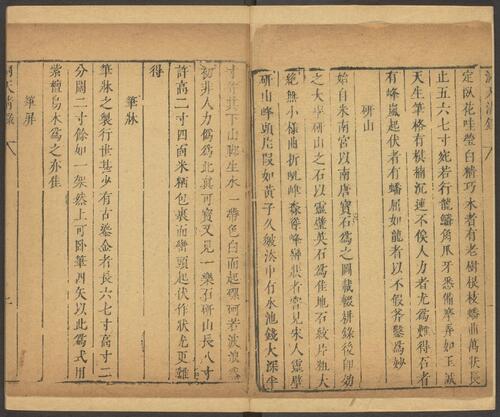 定臥花哇瑩白精巧木者有老樹根枝蟠曲萬狀長
止五六七寸宛若行龍鱗角爪牙悉備摩弄如玉誠
天生筆格有棋楠沉速不俟人力者尤爲難得石者
有峰嵐起伏者有蟠屈如龍者以不假斧鑿爲妙
研山
始自米南宮以南唐寶石爲之圖載輟耕錄後卽効
之大率研山之石以靈璧英石爲佳他石紋片粗大
絕無小樣曲折屼峰森聳峰巒狀者嘗見宋人靈璧
研山峰頭片段如黃子久皴法中有水池錢大深半
寸許其下山腳生水一帶色白而起磥砢若波浪
初非人力僞爲此眞可寶又見一樂石研山長八寸
許高二寸四面米粞包裹而巒頭起伏作狀尤更難
得
筆牀
筆牀之製行世甚少有古鎏金者長六七寸高寸二
分闊二寸餘如一架然上可臥筆四矢以此爲式用
紫檀烏木爲之亦佳
筆屏